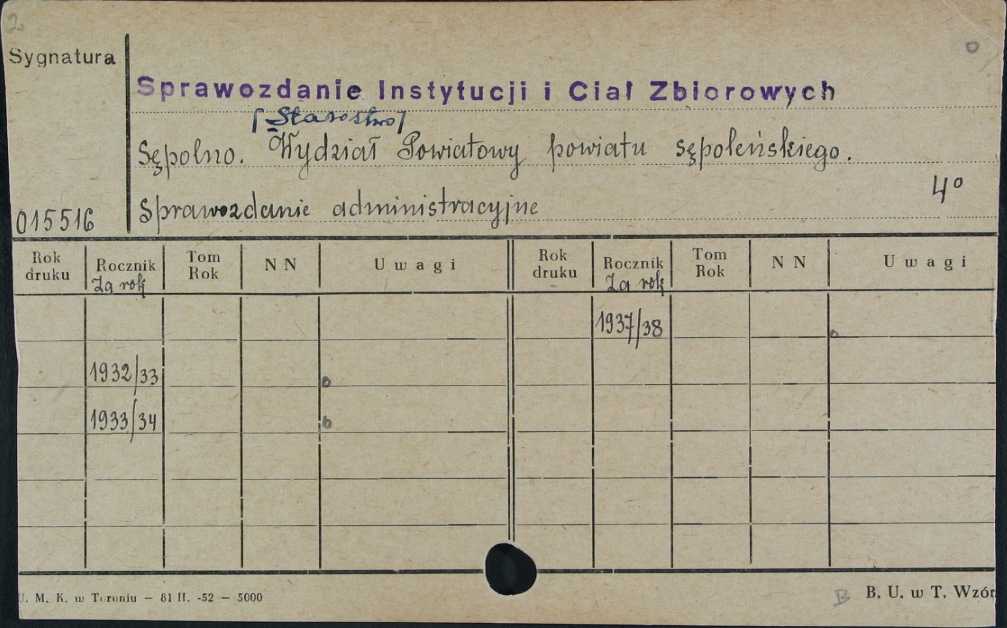 2.
Sygnatura
o
Sprawozdanie Instytucji i Ciał Zbiorowych
[Starostwo]
Sępolno. Wydział Powiatowy powiatu sępoleńskiego.
4°
015516 Sprawozdanie administracyjne
Rok druku Rocznik Tom Rok N N Uwagi Rok druku Rocznik Tom Rok N N Uwagi
Za rok Za rok
1937/38 o
1932/33 o
1933/34 o
U. M. K. w Toruniu — 81 II. -52 — 5000
B B. U. w T. Wzór